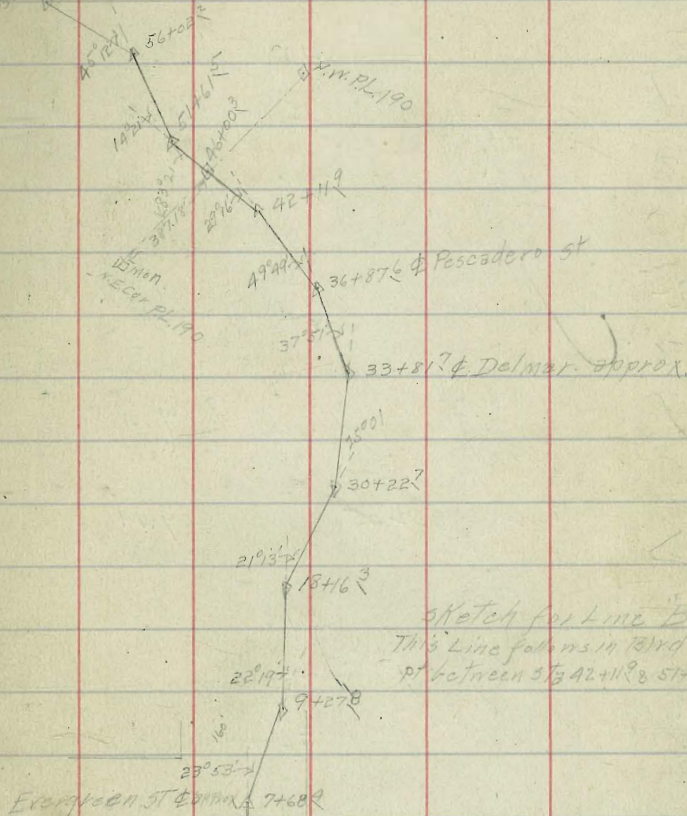 56+02²
40°12'
51+61⁵
14°21'
P.W. P.L. 190
46+00³
83°21'
387.18
29°16'
42+11⁹
W mon.
N.E Cor P.L. 190
49°49'
36+87⁶ ℄ Pescadero St
37°51'
33+81⁷ ℄ Delmar approx.
25°01'
30+22⁷
21°13'
18+16³
Sketch for Line "B
This Line follows in Bird
pt between Sta 42+11⁹ & 51+
22°19'
9+27⁸
160'
23°53'
Evergreen St ℄ approx 7+68⁹